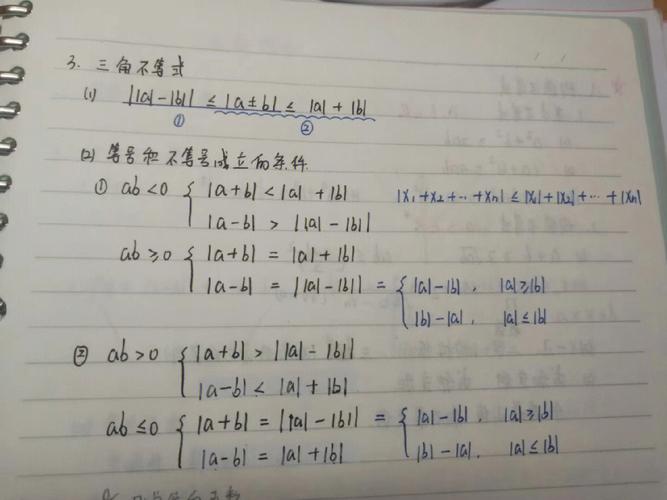 3. 三角不等式
(1) ||a|-|b|| ≤ |a±b| ≤ |a|+|b|
① ②
(2) 等号和不等号成立的条件
① ab<0 { |a+b|<|a|+|b| |x₁+x₂+…+xₙ|≤|x₁|+|x₂|+…+|xₙ|
|a-b| > ||a|-|b||
ab≥0 { |a+b| = |a|+|b|
|a-b| = ||a|-|b|| = { |a|-|b|, |a|≥|b|
|b|-|a|, |a|≤|b|
② ab>0 { |a+b| > ||a|-|b||
|a-b| < |a|+|b|
ab≤0 { |a+b| = ||a|-|b|| = { |a|-|b|, |a|≥|b|
|a-b| = |a|+|b| |b|-|a|, |a|≤|b|